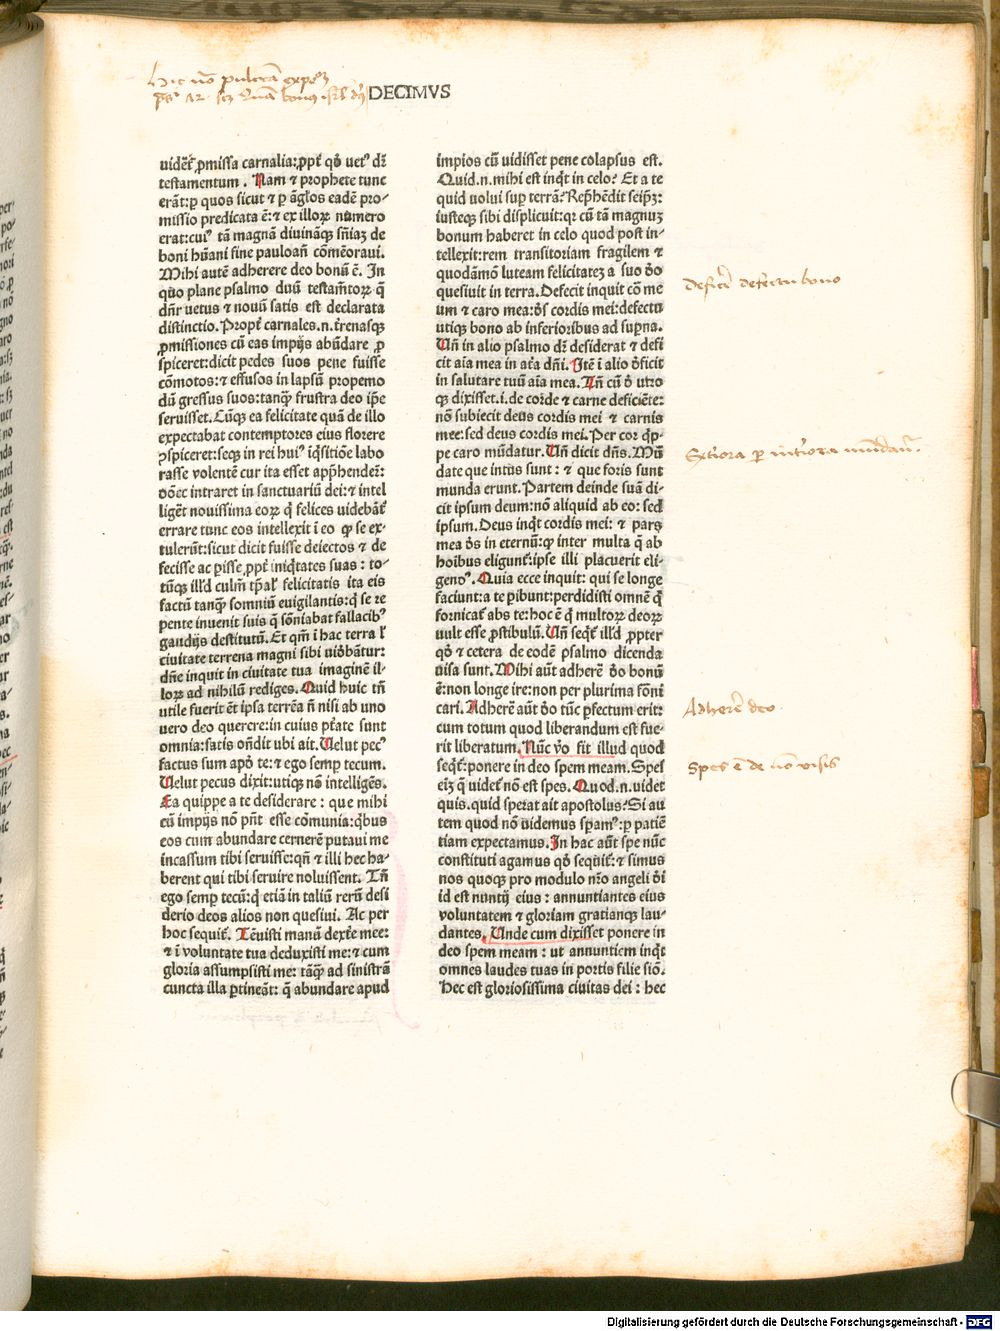 Hic nota pulcram expoem
ps. 72. scz Quam bonus isrl ds
DECIMVS
uidēt᷒ ꝓmissa carnalia:ꝓpt̄ qð uet᷒ dr̄
testamentum . Nam ⁊ prophete tunc
erāt:ꝑ quos sicut ⁊ ꝑ āglos eadē pro-
missio predicata ē: ⁊ ex illoꝝ numero
erat:cui᷒ tā magnā diuināqꝫ sn̄iaꝫ de
boni hūani fine pauloañ cōmēoraui.
Mihi autē adherere deo bonū ē. In
quo plane psalmo duū testam̄toꝝ q̄
dn̄r uetus ⁊ nouū satis est declarata
distinctio. Propt̄ carnales.n.t̄renasqꝫ
ꝓmissiones cū eas impijs abūdare ꝑ
spiceret:dicit pedes suos pene fuisse
cōmotos: ⁊ effusos in lapsū propemo
dū gressus suos:tanqꝫ frustra deo ip̄e
seruisset. Cūqꝫ ea felicitate quā de illo
expectabat contemptores eius florere
ꝯspiceret:seqꝫ in rei hui᷒ īq̄sitiōe labo
rasse volentē cur ita esset app̄hendeř:
ðōec intraret in sanctuariū dei: ⁊ intel
ligēt novissima eoꝝ q̄ felices uidebāt᷒
errare tunc eos intellexit ī eo ꝙ se ex-
tulerūt:sicut dicit fuisse deiectos ⁊ de
fecisse ac ꝑisse ꝓpt̄ iniq̄tates suas : to-
tūqꝫ illd culm̄ tꝑal᷒ felicitatis ita eis
factū tanqꝫ somniū euigilantis:q̄ se re
pente inuenit suis q̄ sōniabat fallacib᷒
gaudijs destitutū. Et qm̄ ī hac terra l᷒
ciuitate terrena magni sibi uiðbātur:
dn̄e inquit in ciuitate tua imaginē il-
loꝝ ad nihilū rediges. Quid huic tn̄
utile fuerit ēt ipsa terrēa n̄ nisi ab uno
uero deo querere:in cuius pt̄ate sunt
omnia:satis on̄dit ubi ait. Uelut pec᷒
factus sum apð te: ⁊ ego semp tecum.
Uelut pecus dixit:utiqꝫ nō intelligēs.
Ea quippe a te desiderare : que mihi
cū impijs nō pn̄t esse cōmunia:q̄bus
eos cum abundare cernerē putaui me
incassum tibi seruisse:qn̄ ⁊ illi hec ha-
berent qui tibi seruire noluissent. Tn̄
ego semp tecū:q̄ etiā in taliū rerū desi
derio deos alios non quesiui. Ac per
hoc sequit᷒. Tēuisti manū dext̄e mee:
⁊ ī voluntate tua deduxisti me: ⁊ cum
gloria assumpsisti me: tāqꝫ ad sinistrā
cuncta illa ꝑtineāt: q̄ abundare apud
impios cū uidisset pene colapsus est.
Quid.n.mihi est inq̄t in celo? Et a te
quid uolui suꝑ terrā? Rep̄hēdit seip̄ꝫ:
iusteqꝫ sibi displicuit:qꝛ cū tā magnuꝫ
bonum haberet in celo quod post in-
tellexit:rem transitoriam fragilem ⁊
quodāmō luteam felicitateꝫ a suo ðo
quesiuit in terra. Defecit inquit cō me
um ⁊ caro mea:ðs cordis mei:defectu
utiqꝫ bono ab inferioribus ad suꝑna.
Un̄ in alio psalmo dr̄ desiderat ⁊ defi
cit aīa mea in at̄a dn̄i. Itē ī alio ðficit
in salutare tuū aīa mea. Tn̄ cū ð utro
qꝫ dixisset.i.de corde ⁊ carne deficiēte:
nō subiecit deus cordis mei ⁊ carnis
mee:sed deus cordis mei. Per cor q̄p-
pe caro mūdatur. Un̄ dicit dn̄s. Mū
date que intus sunt : ⁊ que foris sunt
munda erunt. Partem deinde suā di-
cit ipsum deum:nō aliquid ab eo: sed
ipsum. Deus inq̄t cordis mei: ⁊ pars
mea ðs in eternū:ꝙ inter multa q̄ ab
hoibus eligunt᷒:ipse illi placuerit eli-
genð᷒. Quia ecce inquit: qui se longe
faciunt:a te ꝑibunt:perdidisti omnē q̄
fornicat᷒ abs te:hoc ē q̄ multoꝝ deoꝝ
uult esse ꝓstibulū. Un̄ seqt᷒ illd ꝓpter
qð ⁊ cetera de eodē psalmo dicenda
uisa sunt. Mihi aūt adherē ðo bonū
ē:non longe ire:non per plurima fōni
cari. Adherē aūt ðo tūc ꝑfectum erit:
cum totum quod liberandum est fue-
rit liberatum. Nūc ꝟo fit illud quod
seqt᷒:ponere in deo spem meam. Spes
eiꝫ q̄ uidet᷒ nō est spes. Quod.n.uidet
quis.quid sperat ait apostolus? Si au
tem quod nō uidemus spam᷒:ꝑ patiē
tiam expectamus. In hac aūt spe nūc
constituti agamus qð sequit᷒: ⁊ simus
nos quoqꝫ pro modulo nr̄o angeli ði
id est nuntij eius : annuntiantes eius
voluntatem ⁊ gloriam gratianqꝫ lau-
dantes. Unde cum dixisset ponere in
deo spem meam : ut annuntiem inq̄t
omnes laudes tuas in portis filie siō.
Hec est gloriosissima ciuitas dei : hec
Deficere defectu bono
Exteriora per interiora mundant᷒.
Adherere deo.
Spes ē de nō visis
Digitalisierung gefördert durch die Deutsche Forschungsgemeinschaft - DFG